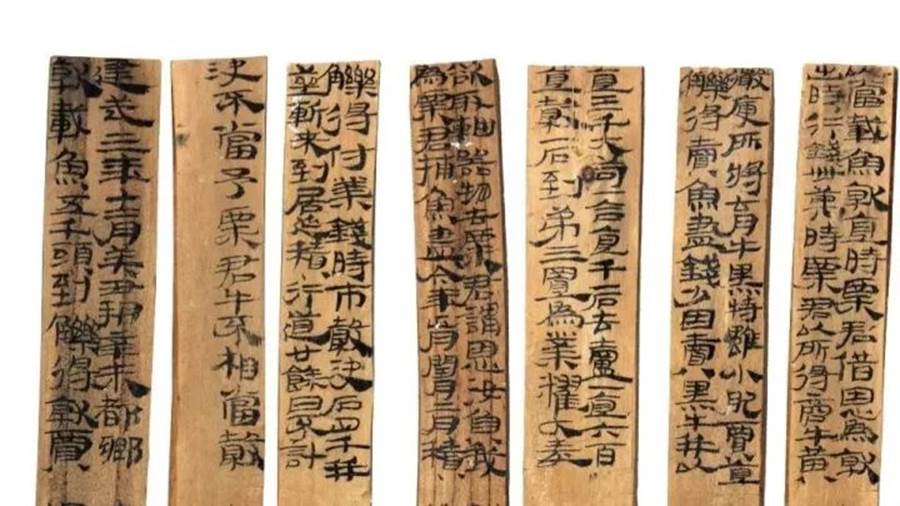 當載魚就直時粟君借恩為就
出時行錢卌萬時粟君以所得商牛黃
庚所將育牛黑特雖小肥賈直
觻得賣魚盡錢少因賣黑牛并以
直三千大笥一合直千一石去盧一直六百
直穀一石到弟三置為業糴大麦
欲取軸器物去粟君謂恩汝負我
為粟君捕魚盡今年正月閏月二月積
觻得付業錢時市穀決石四千并
莝斬來到居延積行道廿餘日不計
決不當予粟君牛不相當穀
建武三年十二月癸丑朔辛未都鄉
就載魚五千頭到觻得就賈